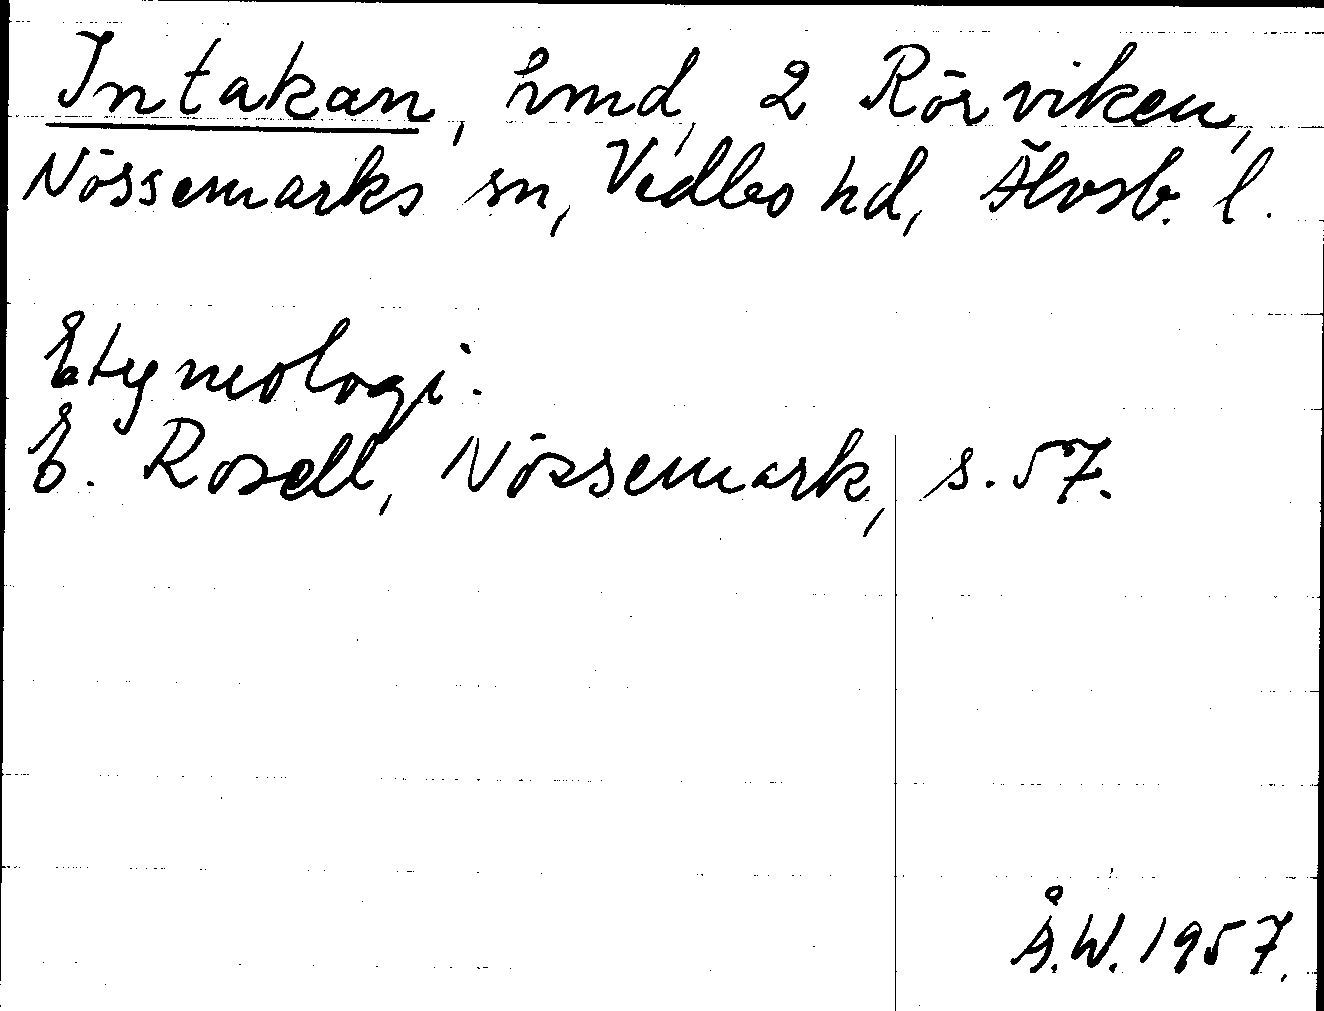 Intakan, hmd, 2 Rörviken,
Nössemarks sn, Vedbo hd, Älvsb. l.
Etymologi.
E. Rosell, Nössemark, s. 57.
Å.W. 1957.